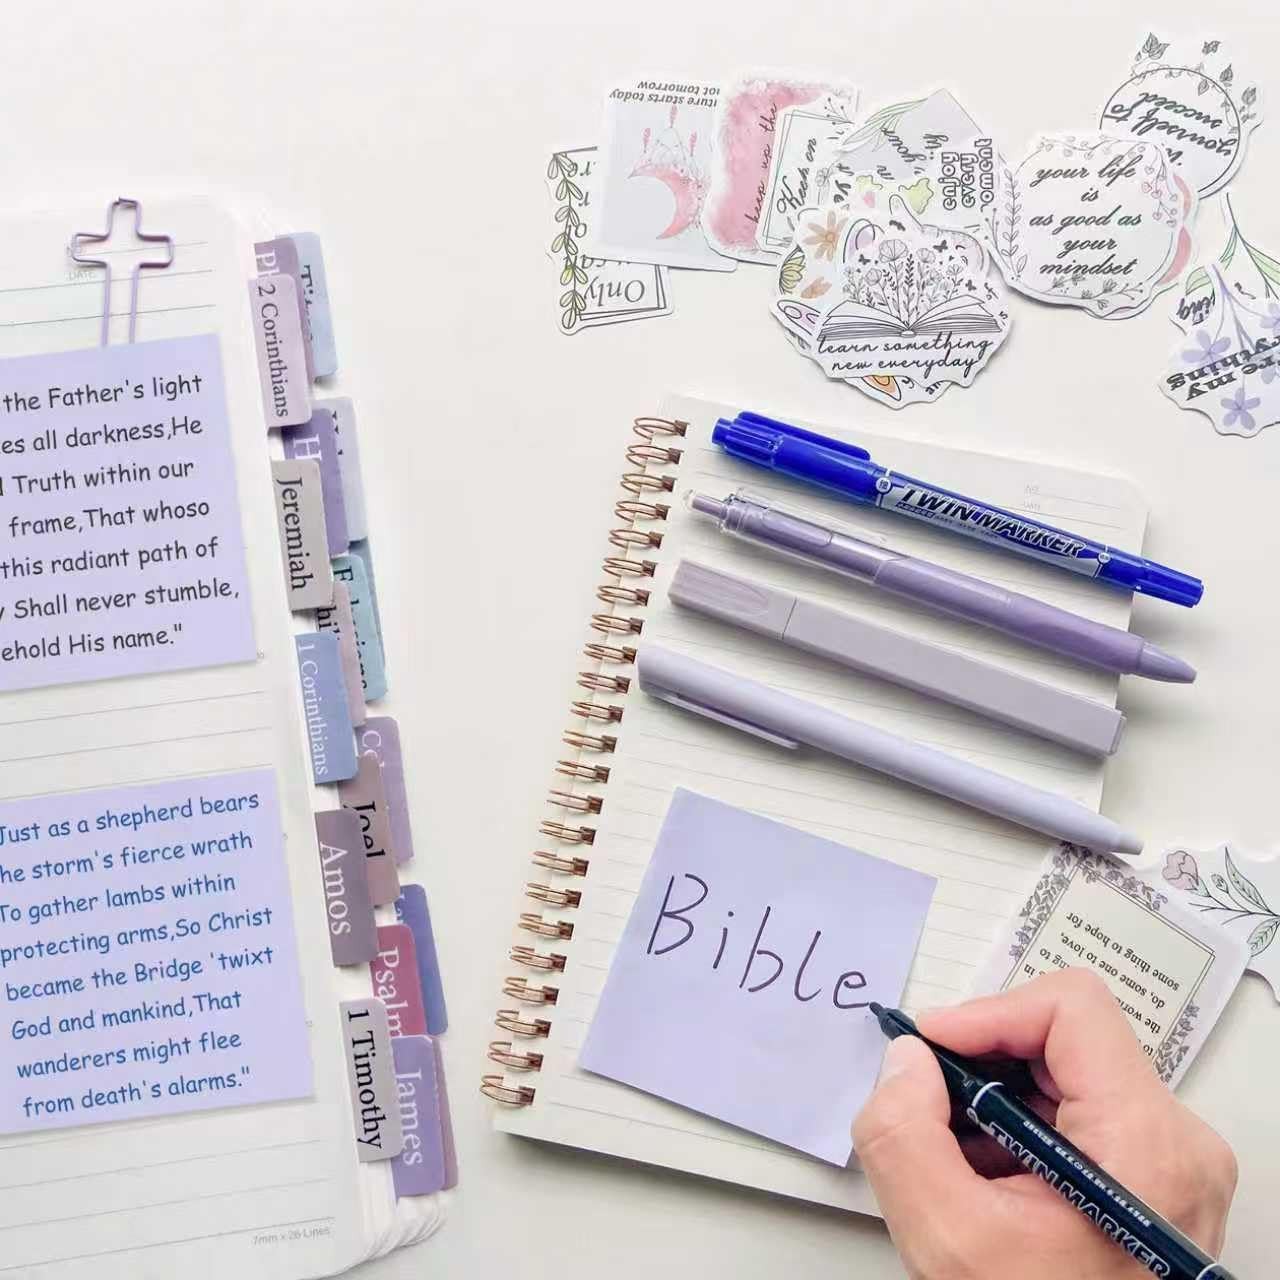 the Father's light
all darkness,He
Truth within our
frame,That whoso
this radiant path of
Shall never stumble,
His name."
Just as a shepherd bears
storm's fierce wrath
To gather lambs within
protecting arms,So Christ
became the Bridge 'twixt
God and mankind,That
wanderers might flee
from death's alarms."
7mm x 26 Lines
DATE
2 Corinthians
Jeremiah
1 Corinthians
Joel
Amos
Psalm
1 Timothy
James
starts today
not tomorrow
keep up the
Only
enjoy
every
moment
learn something
new everyday
yourself to
succeed
your life
is
as good as
your
mindset
are my
TWIN MARKER
NO.
DATE
Bible
some thing to hope for
do, some one to love,
the
to
TWIN MARKER